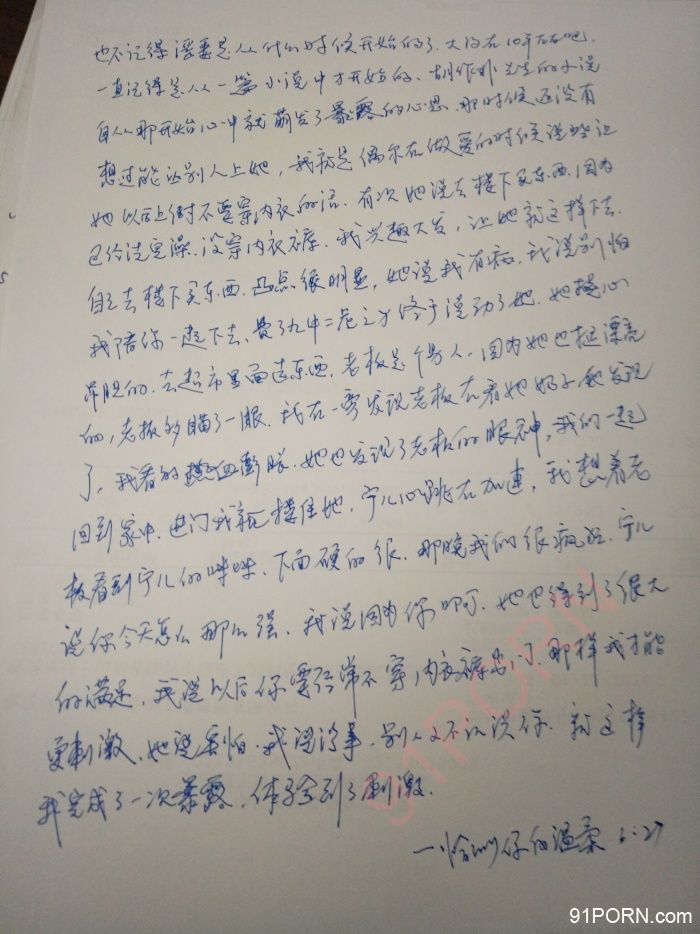 也不记得淫妻是从什么时候开始的了.大约在10年左右吧.
一直记得是从一篇小说中才开始的.胡作非先生的小说
自从那开始心中就萌发了暴露的心思.那时候还没有
想过能让别人上她,我就是偶尔在做爱的时候说些让
她以后上街不要穿内衣的话.有次她说去楼下买东西.因为
已经洗完澡.没穿内衣裤.我兴趣大发,让她就这样下去.
自己去楼下买东西.凸点很明显,她说我有病.我说别怕
我陪你一起下去,费了九牛二虎之力终于说动了她.她提心
吊胆的.去超市里面选东西.老板是个男人.因为她也挺漂亮
的,老板多瞄了一眼.我在一旁发现老板在看她奶子.我发现
了,我看的热血膨胀.她也发现了老板的眼神,我们一起
回到家中.进门我就搂住她.宁儿心跳在加速,我想着老
板看到宁儿的咪咪.下面硬的很.那晚我们很疯狂.宁儿
说你今天怎么那么强.我说因为你啊.她也得到了很大
的满足.我说以后你要经常不穿内衣裤出门.那样我才能
更刺激.她说害怕.我说没事.别人又不认识你.就这样
我完成了一次暴露.体会到了刺激.
一恰似你的温柔 6.27
91PORN
91PORN.COM